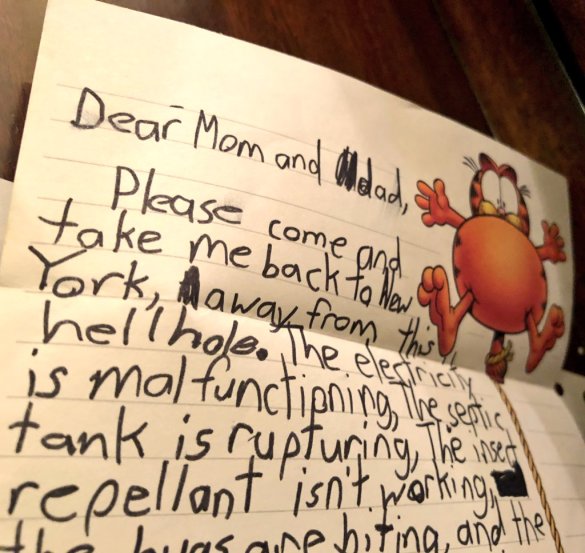 Dear Mom and dad,
Please come and
take me back to New
York, away from this
hellhole. The electricity
is malfunctioning, The septic
tank is rupturing, The insect
repellant isn't working,
the bugs are biting, and the